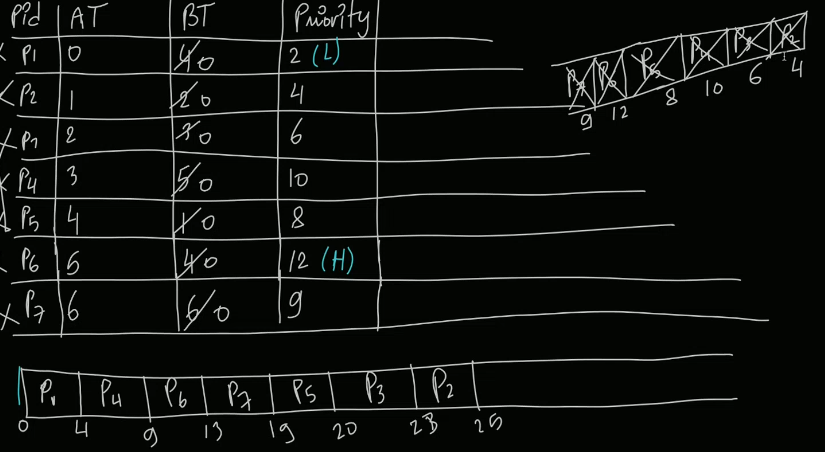 Pid AT BT Priority
P1 0 4 0 2 (L)
P2 1 2 0 4
P3 2 3 0 6
P4 3 5 0 10
P5 4 1 0 8
P6 5 4 0 12 (H)
P7 6 6 0 9
P7 P6 P5 P4 P3 P2
9 12 8 10 6 4
P1 P4 P6 P7 P5 P3 P2
0 4 9 13 19 20 23 25